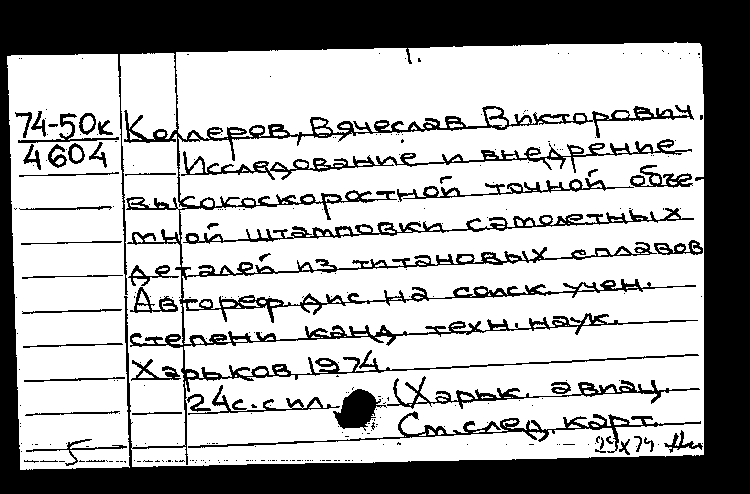 1.
74-50к Коллеров, Вячеслав Викторович.
4604 Исследование и внедрение
высокоскоростной точной объе-
мной штамповки самолетных
деталей из титановых сплавов
Автореф. дис. на соиск. учен.
степени канд. техн. наук.
Харьков, 1974.
24с. с ил. (Харьк. авиац.
См. след. карт.
5 29х74